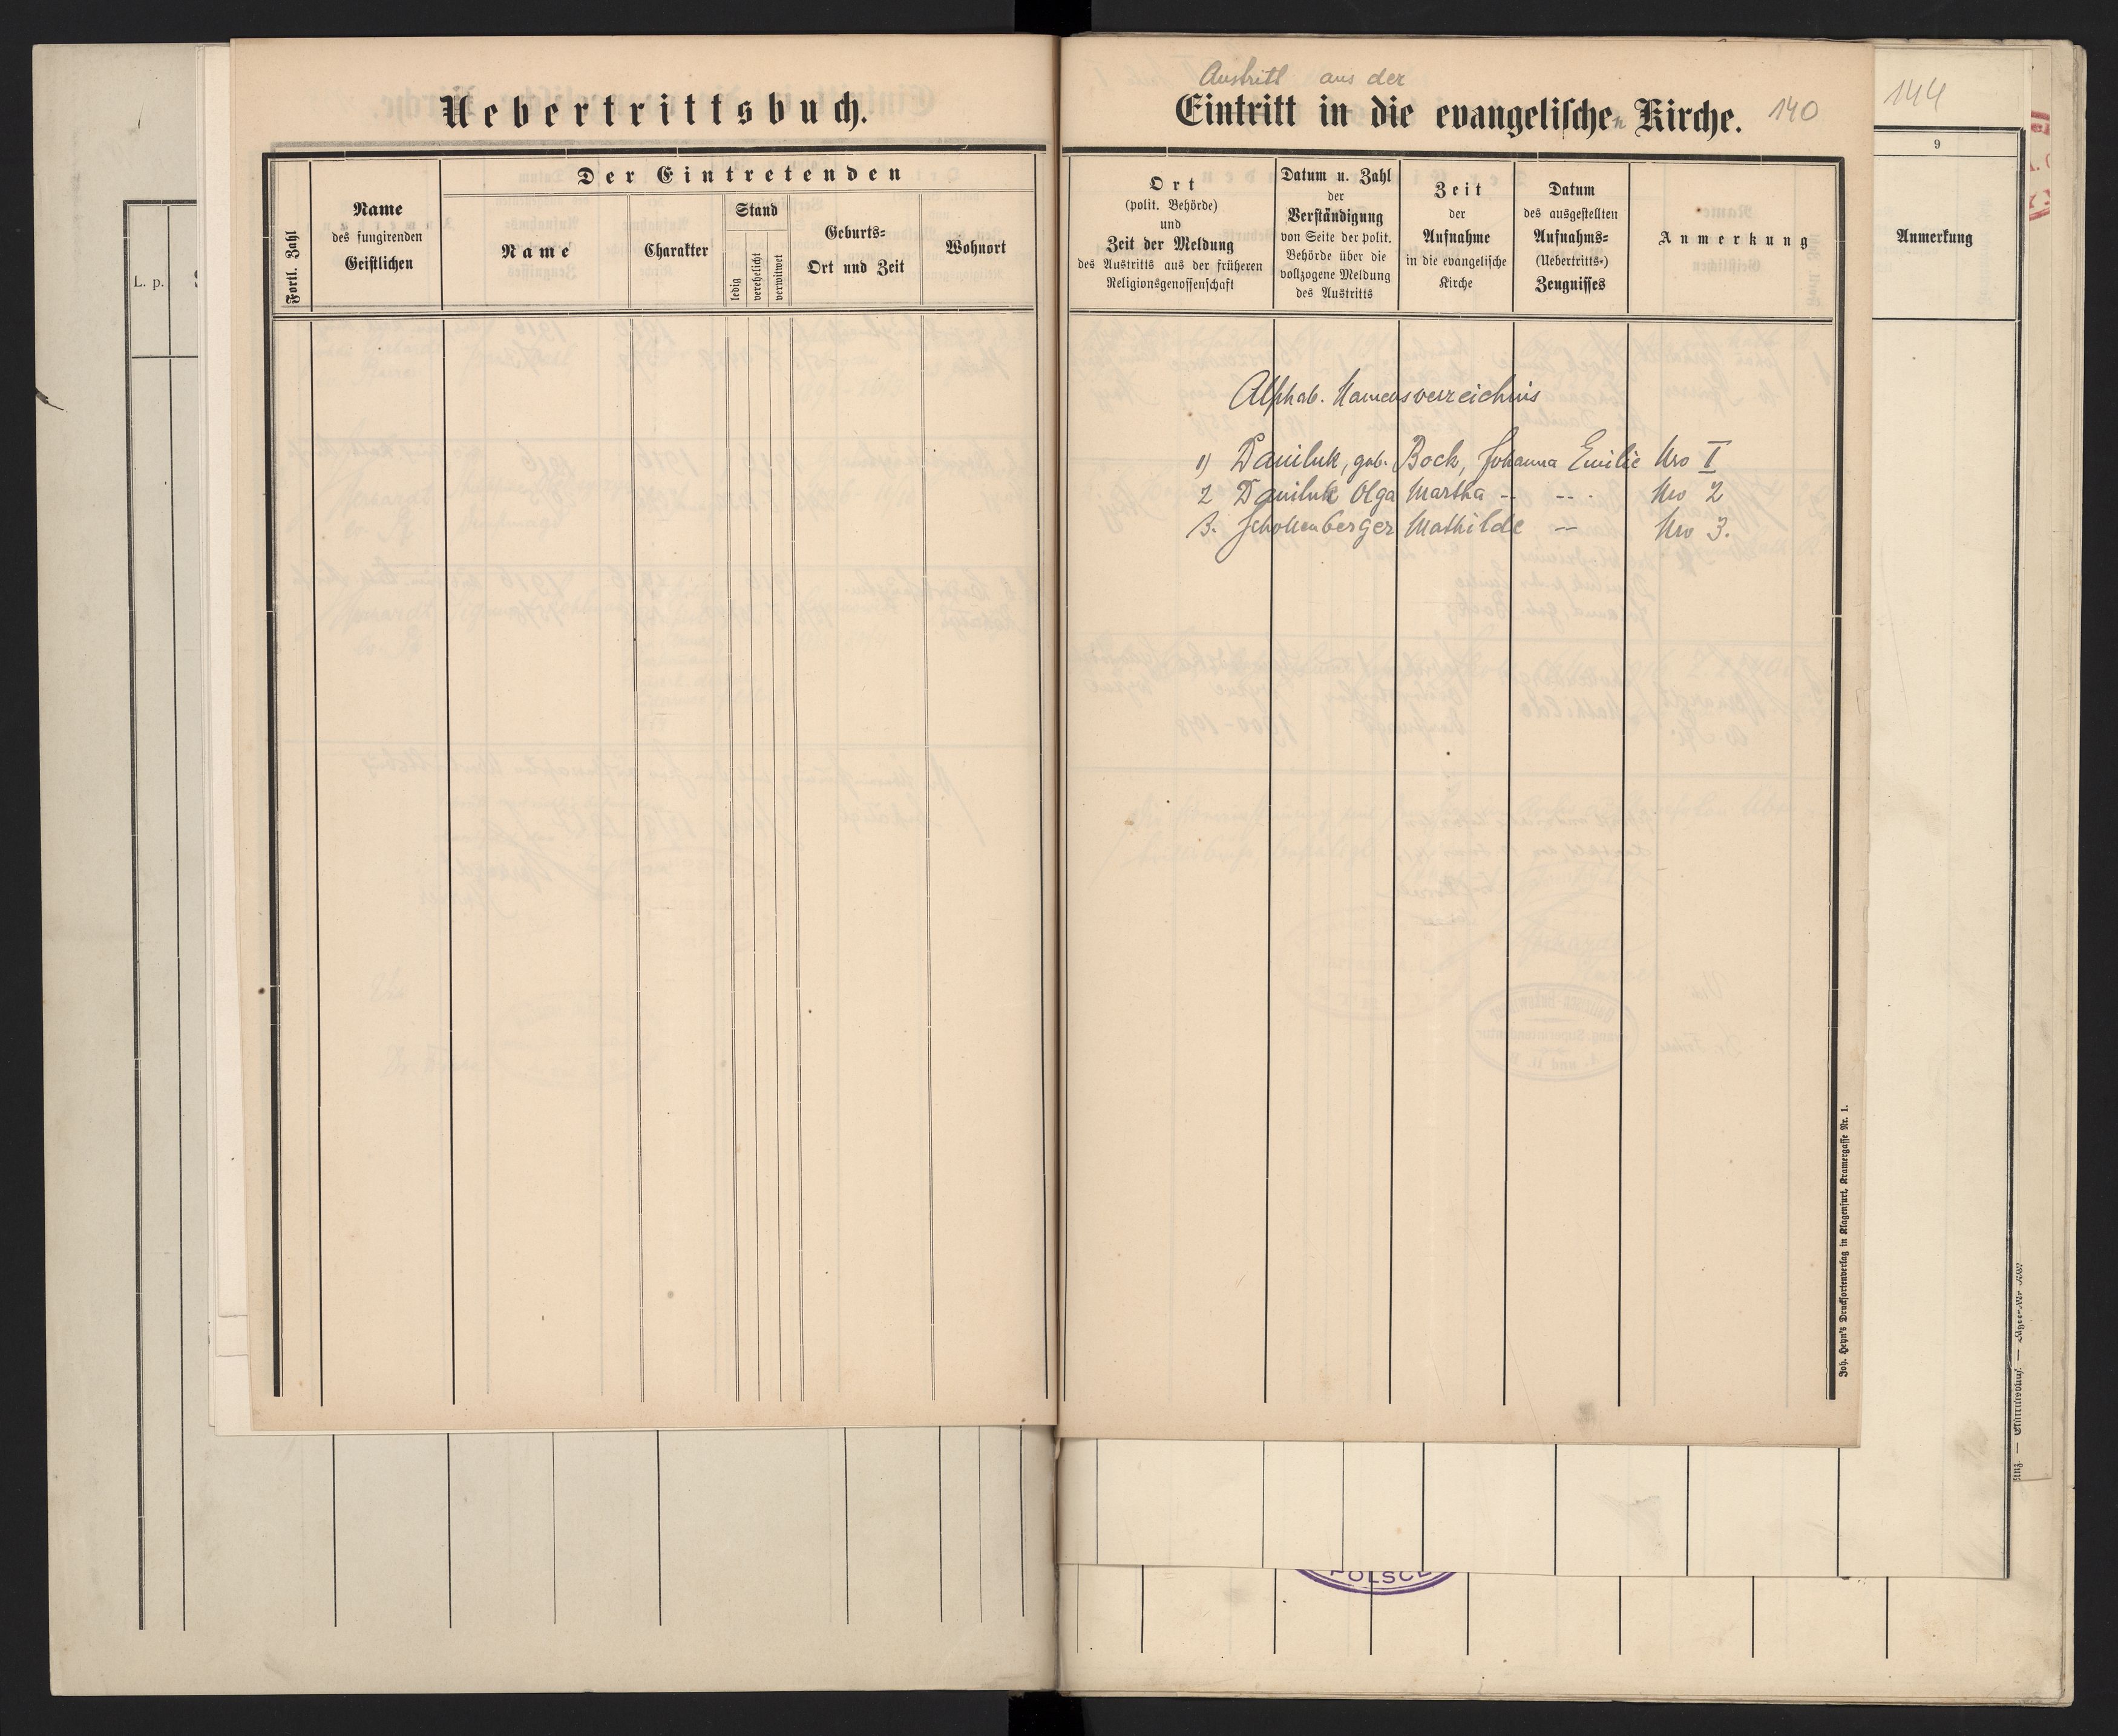 Uebertrittsbuch.
Fortl. Zahl
Name
des fungirenden
Geistlichen
Der Eintretenden
Name
Charakter
Stand
ledig
verehelicht
verwitwet
Geburts=
Ort und Zeit
Wohnort
L. p.
Austritt aus der
Eintritt in die evangelischen Kirche. 140
Ort
(polit. Behörde)
und
Zeit der Meldung
des Austritts aus der früheren
Religionsgenossenschaft
Datum u. Zahl
der
Verständigung
von Seite der polit.
Behörde über die
vollzogene Meldung
des Austritts
Zeit
der
Aufnahme
in die evangelische
Kirche
Datum
des ausgestellten
Aufnahms=
(Uebertritts=)
Zeugnisses
Anmerkung
Alphab. Namensverzeichnis
1) Daniluk, geb. Bock, Johanna Emilie Nro I
2 Daniluk Olga Martha -- -- . Nro 2
3. Schollenberger Mathilde -- Nro 3.
Joh. Heyn's Drucksortenverlag in Klagenfurt, Kramergasse Nr. 1.
144
9
Anmerkung
POLSCE